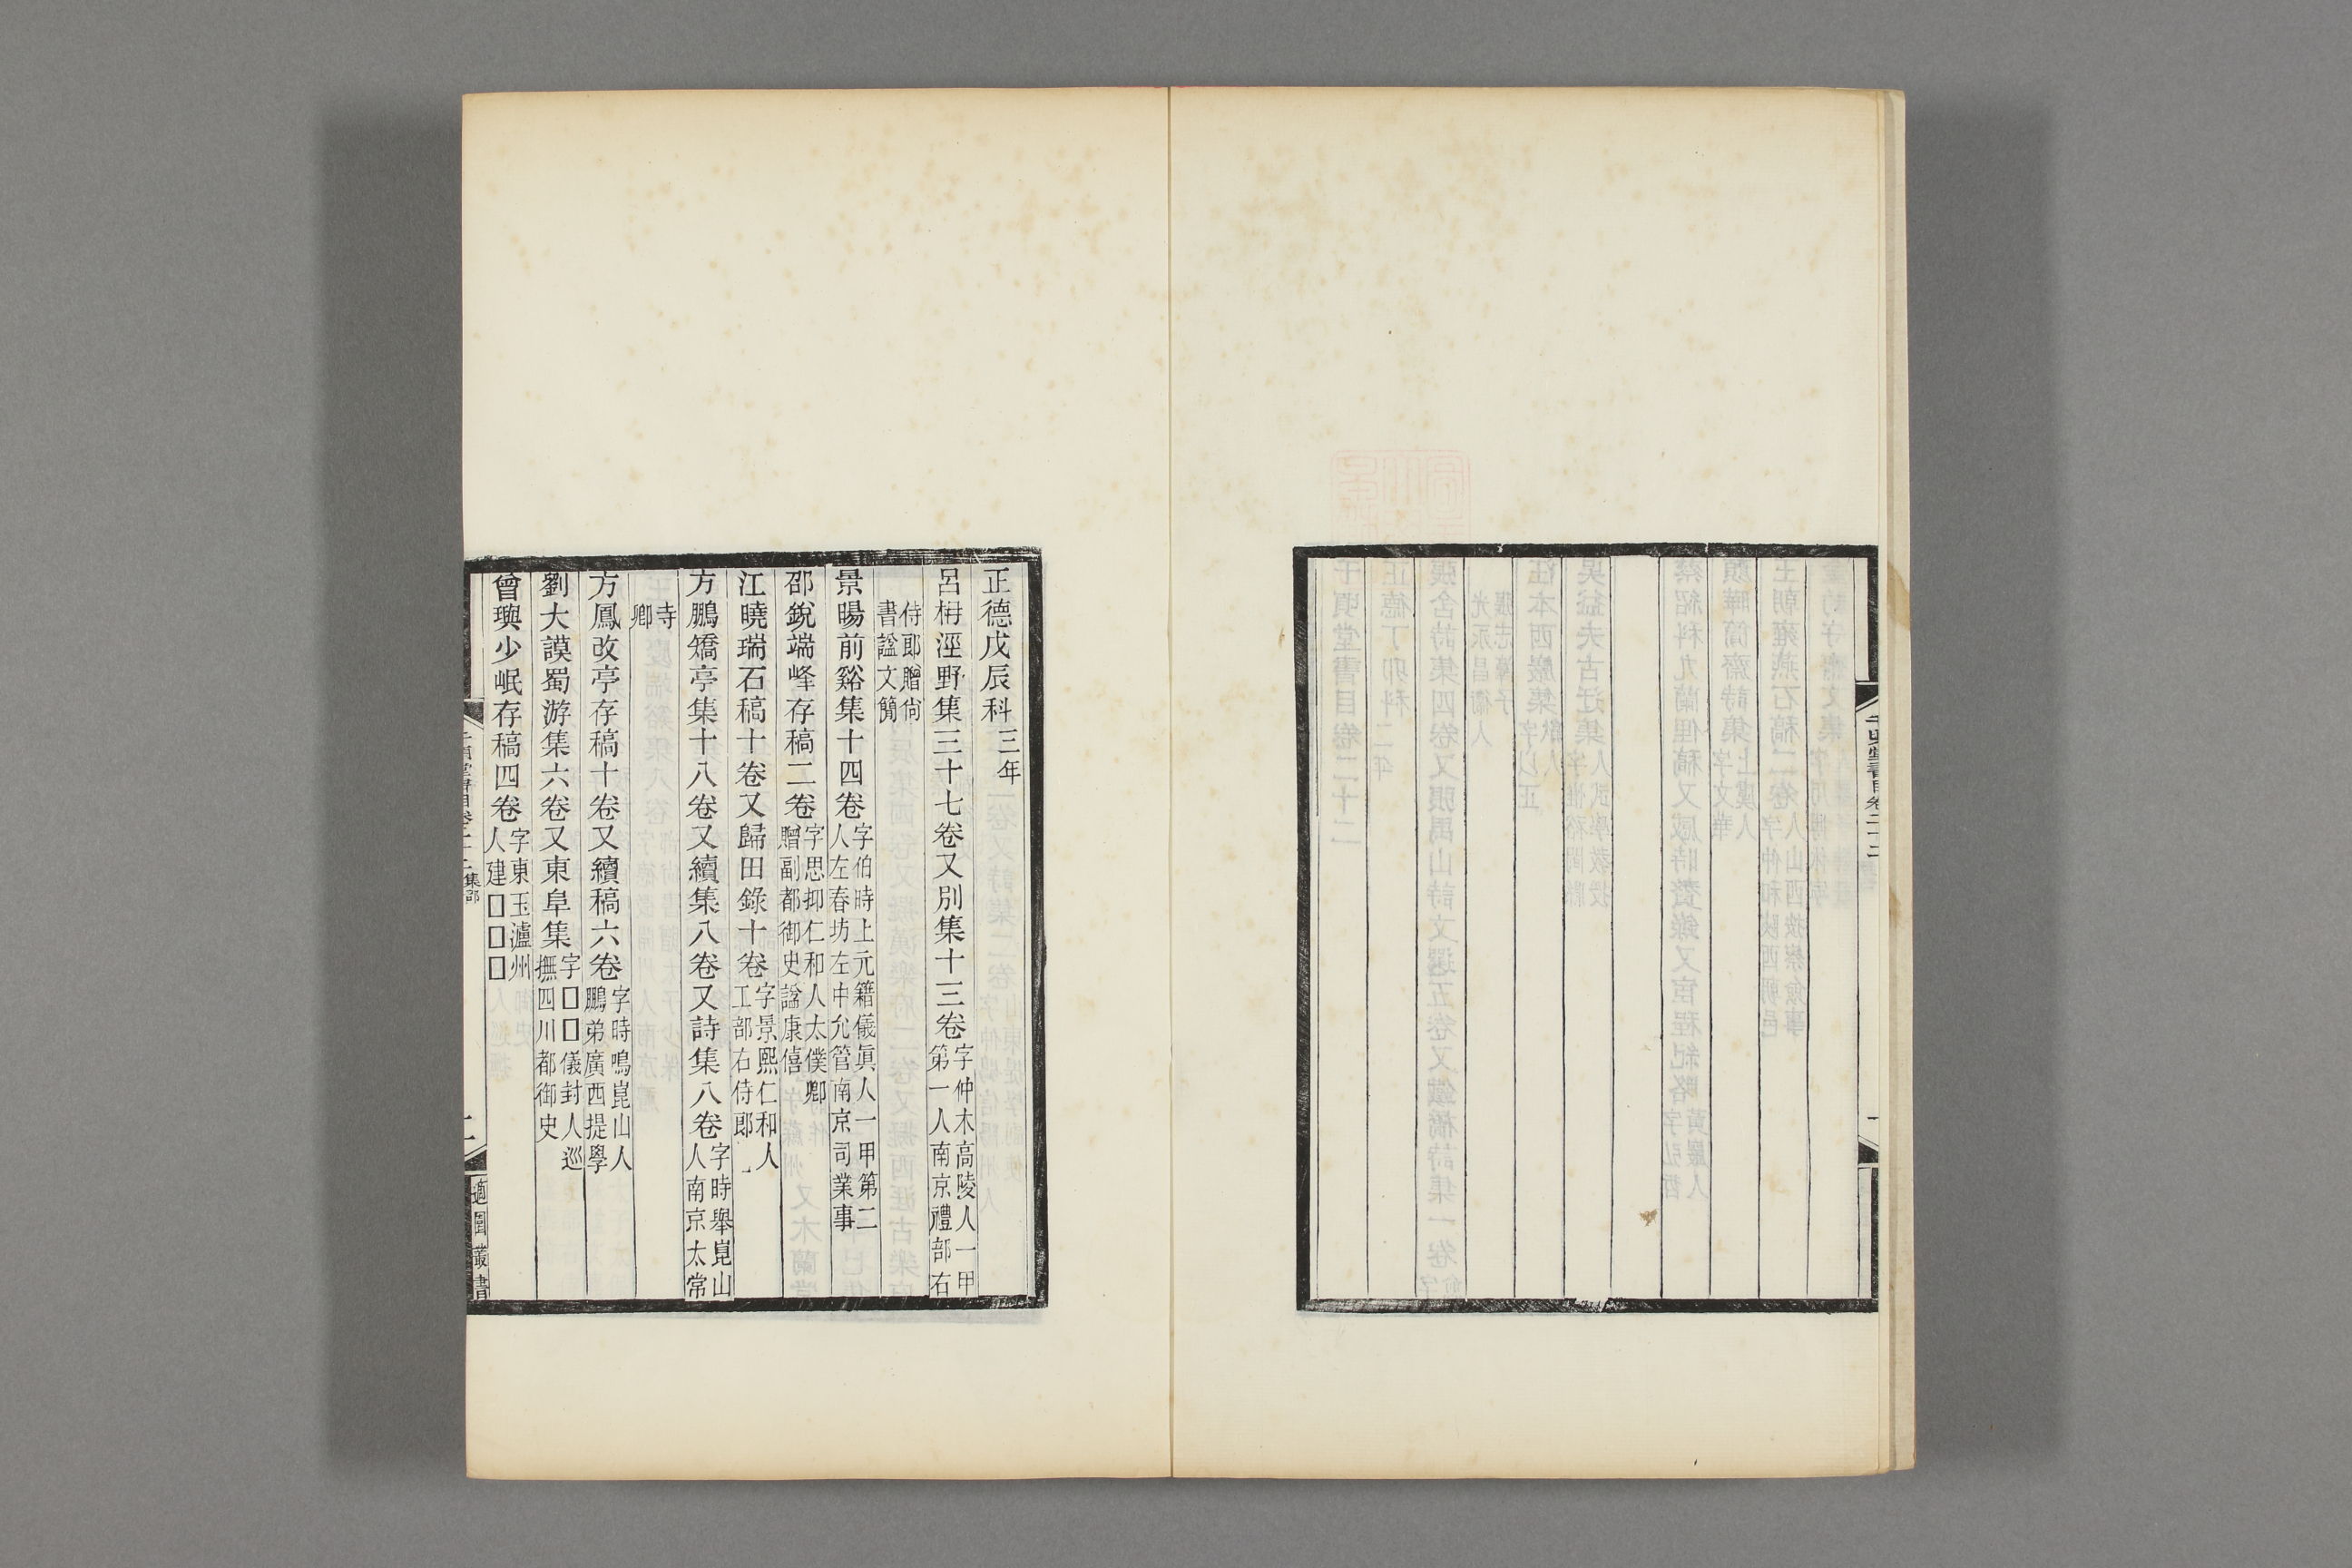 千頃堂書目卷二十二
一
正德戊辰科三年
呂柟涇野集三十七卷又別集十三卷字仲木高陵人一甲第一人南京禮部右
侍郎贈尙書諡文簡
景暘前谿集十四卷字伯時上元籍儀眞人一甲第二人左春坊左中允管南京司業事
邵銳端峰存稿二卷字思抑仁和人太僕卿贈副都御史諡康僖
江曉瑞石稿十卷又歸田錄十卷字景熙仁和人工部右侍郎
方鵬矯亭集十八卷又續集八卷又詩集八卷字時舉崑山人南京太常
寺卿
方鳳改亭存稿十卷又續稿六卷字時鳴崑山人鵬弟廣西提學
劉大謨蜀游集六卷又東阜集字□□儀封人巡撫四川都御史
曾璵少岷存稿四卷字東玉瀘州人建□□□
千頃堂書目卷二十二集部
二
適園叢書